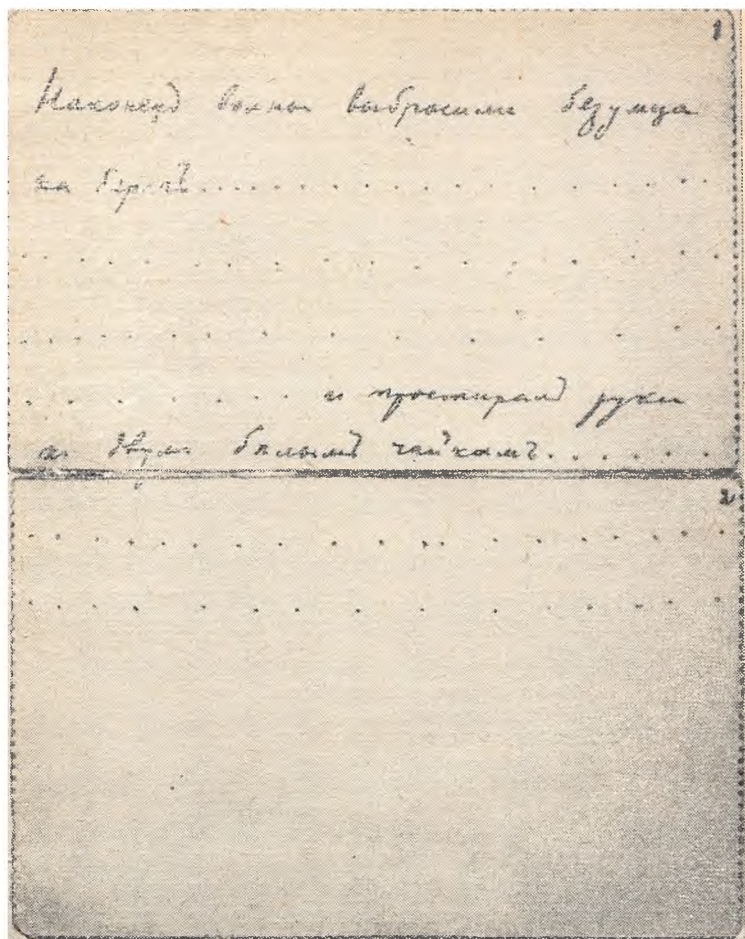 1
Наконецъ волны выбросили безумца
на берегъ. . . . . . . . . . . . . . . . .
. . . . . . . . . . . . . . .
. . . . . . . . . . . . . . .
. . . . . . . . . и простиралъ руки
къ двумъ бѣлымъ чайкамъ. . . . . .
2
. . . . . . . . . . . . . . . . . . .
. . . . . . . . . . . . . . .